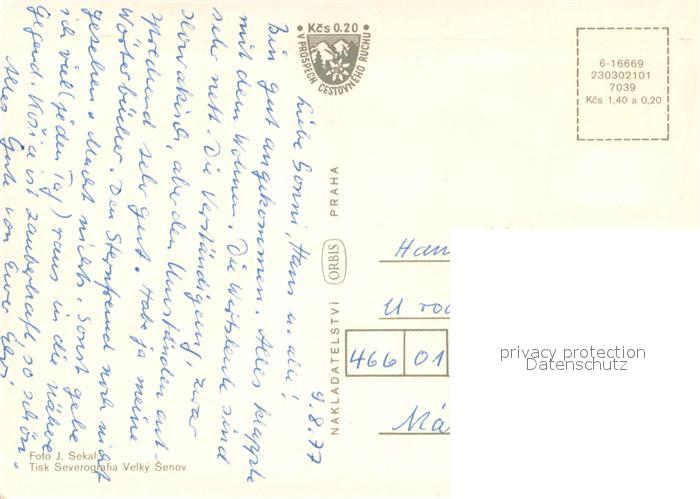 Kčs 0.20
V PROSPECH CESTOVNÉHO RUCHU
6-16669
230302101
7039
Kčs 1,40 a 0,20
9.8.77
Liebe Sonni, Hans u. alle!
Bin gut angekommen. Alles klappte
mit dem Wohnen. Die Wirtsleute sind
sehr nett. Die Verständigung, zwar
slowakisch, aber den Umständen ent-
sprechend sehr gut. Habe ja meine
Wörterbücher. Den Sternfreund noch nicht
gesehen. Macht nichts. Sonst gehe
ich viel (jeden Tag) raus in die nähere
Gegend. Košice ist zauberhaft so schön.
Alles Gute von Eurer
NAKLADATELSTVÍ ORBIS PRAHA
Han
U ro
466 01
Má
privacy protection
Datenschutz
Foto J. Sekal
Tisk Severografia Velký Šenov